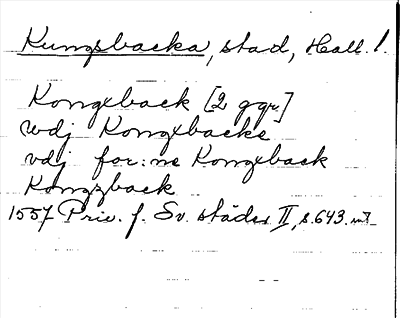 Kungsbacka, stad, Hall. 1.
Kongxback [2 ggr.]
vdj Kongxbacke
vdj for:ne Kongxback
Kongzback
1557 Priv. f. Sv. städer II, s. 643.